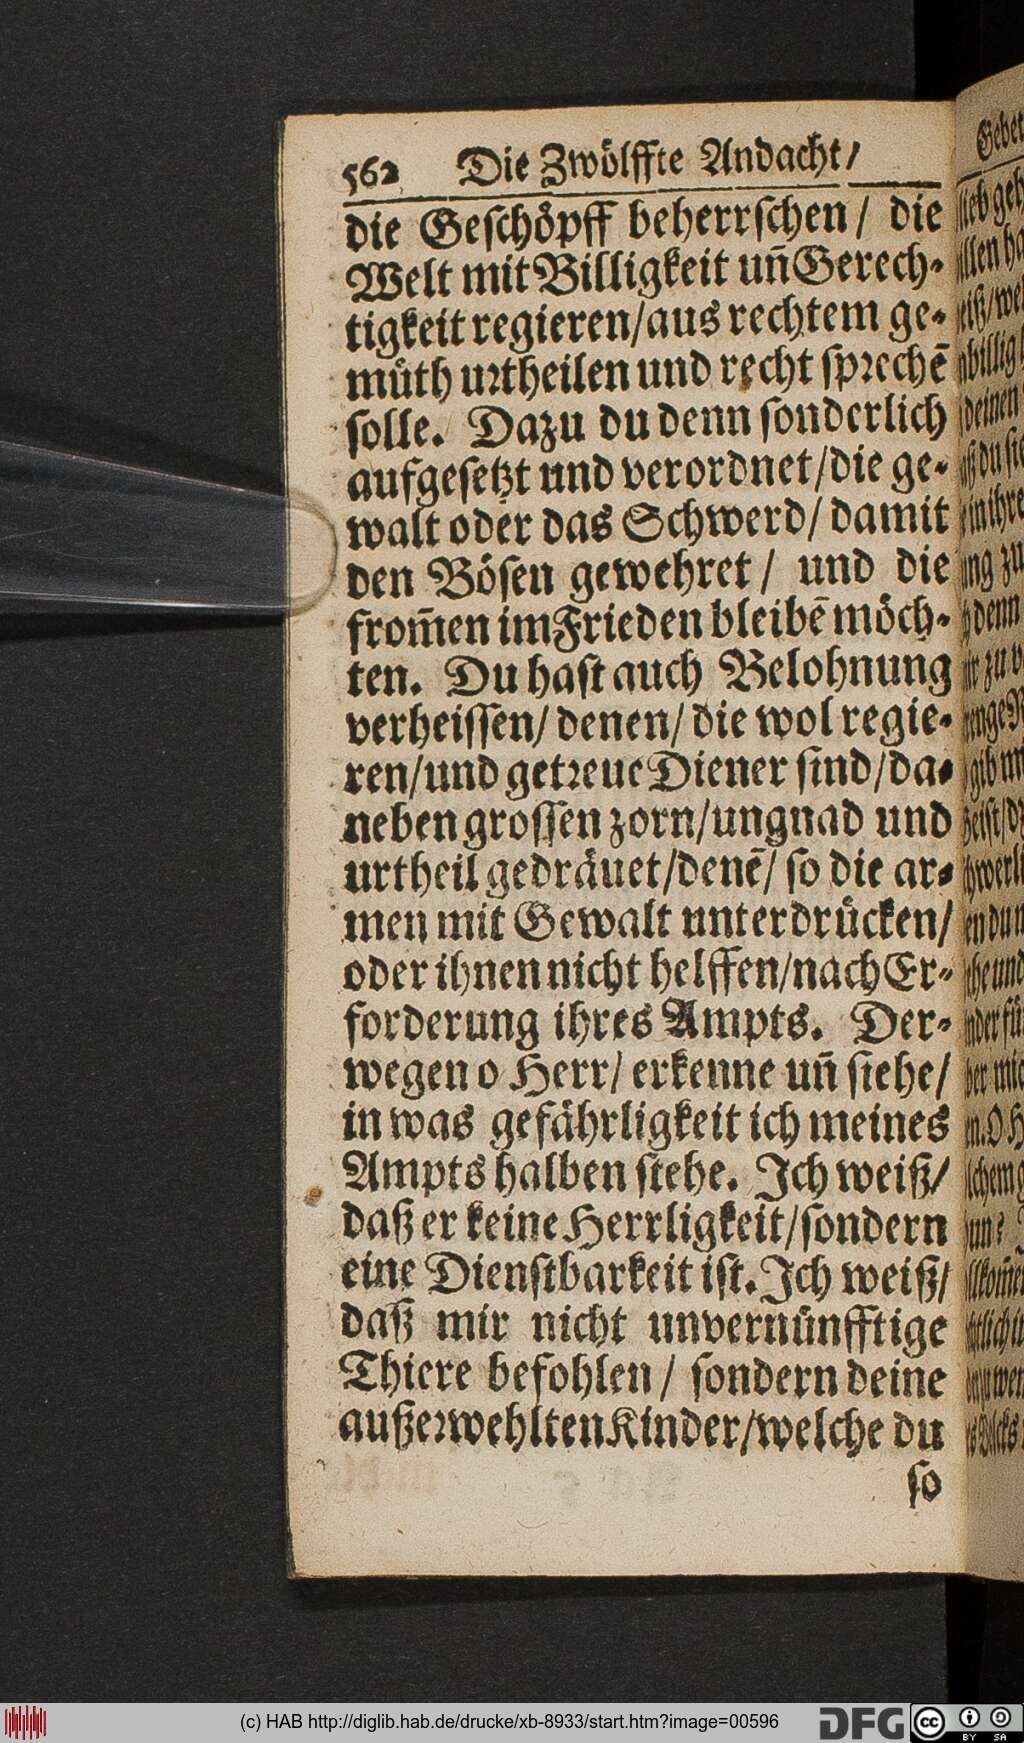 562 Die Zwölffte Andacht/
die Geſchöpff beherrſchen/ die
Welt mit Billigkeit uñ Gerech-
tigkeit regieren/aus rechtem ge-
müth urtheilen und recht ſprechē
ſolle. Dazu du denn ſonderlich
aufgeſetzt und verordnet/die ge-
walt oder das Schwerd/ damit
den Böſen gewehret/ und die
from̃en im Frieden bleibē möch-
ten. Du haſt auch Belohnung
verheiſſen/ denen/ die wol regie-
ren/und getreue Diener ſind/da-
neben groſſen zorn/ungnad und
urtheil gedräuet/denē/ ſo die ar-
men mit Gewalt unterdrücken/
oder ihnen nicht helffen/nach Er-
forderung ihres Ampts. Der-
wegen o Herr/ erkenne uñ ſiehe/
in was gefährligkeit ich meines
Ampts halben ſtehe. Ich weiß/
daß er keine Herrligkeit/ſondern
eine Dienſtbarkeit iſt. Ich weiß/
daß mir nicht unvernünfftige
Thiere befohlen/ ſondern deine
außerwehlten Kinder/welche du
ſo
(c) HAB http://diglib.hab.de/drucke/xb-8933/start.htm?image=00596
DFG
cc BY SA